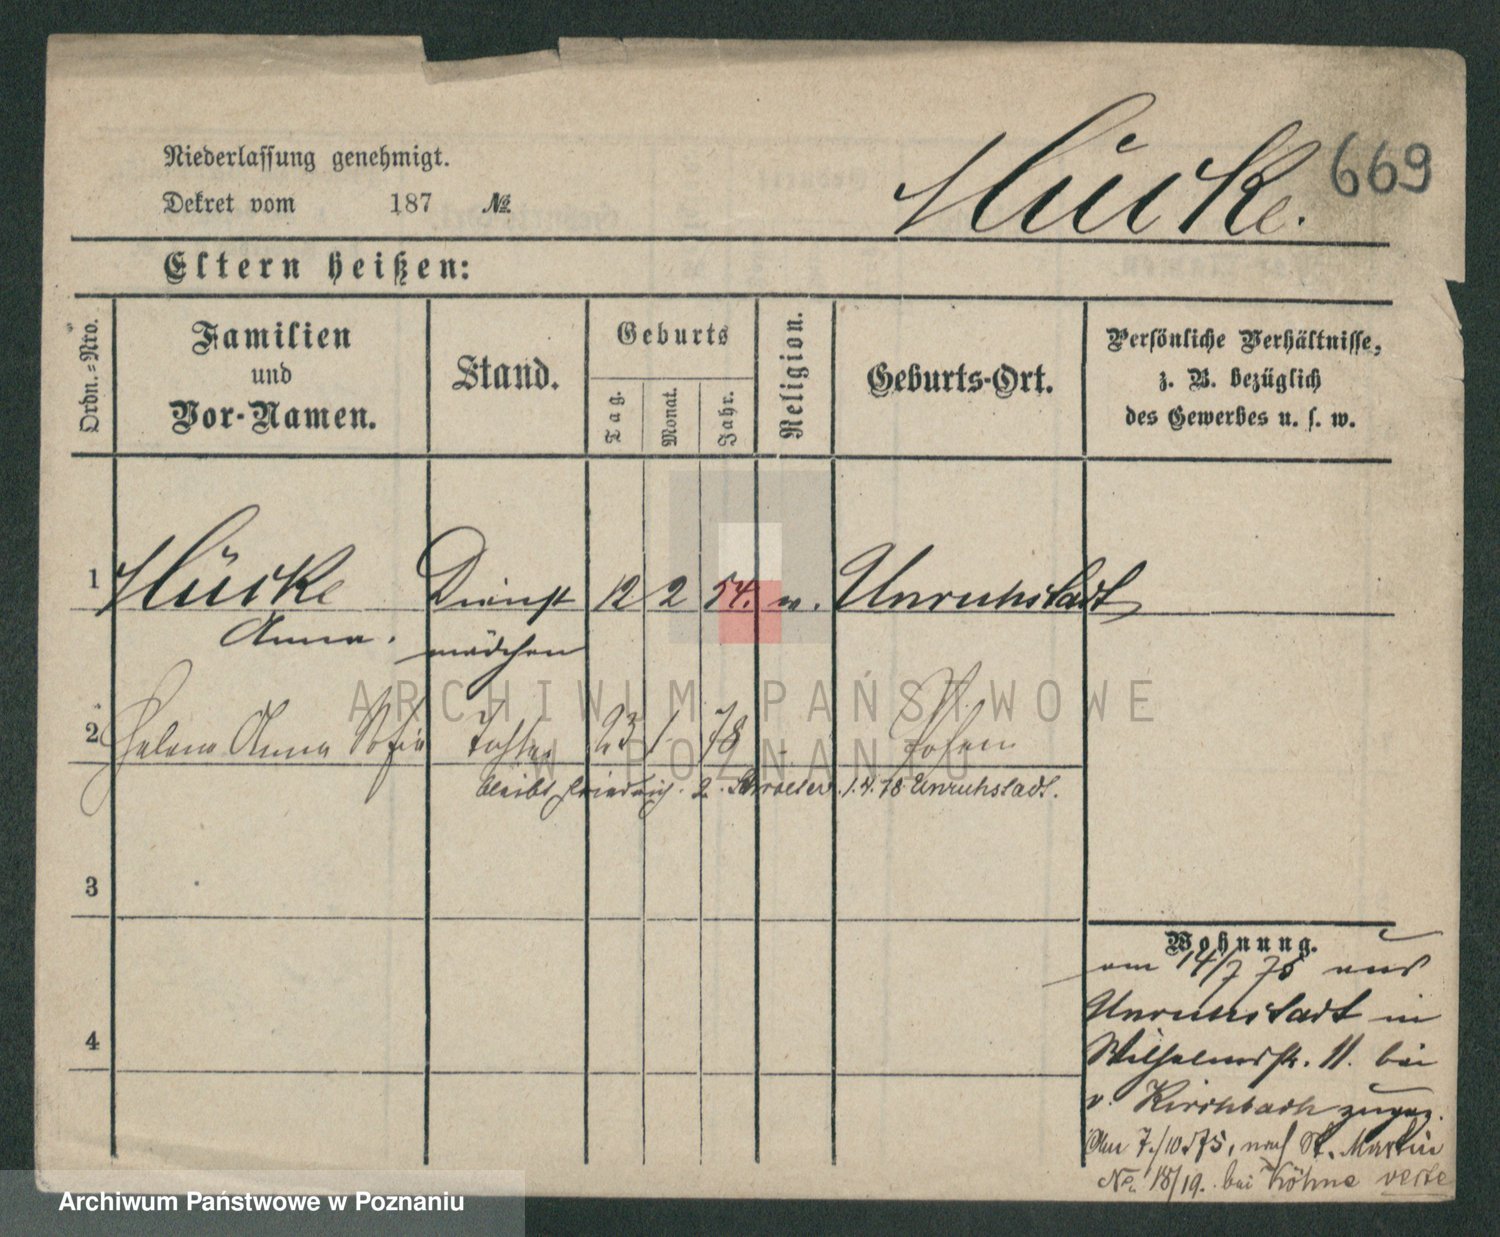 Niederlassung genehmigt.
Dekret vom 187 №
Hücke.
669
Eltern heißen:
Ordn.-Nro.
Familien
und
Vor-Namen.
Stand.
Geburts
Tag.
Monat.
Jahr.
Religion.
Geburts-Ort.
Persönliche Verhältnisse,
z. B. bezüglich
des Gewerbes u. s. w.
1 Hücke Dienst 12 2 54. Unruhstadt
Anna. mädchen
2 Helena Anna Sofia Tochter 23 1 78 Posen
bleibt 1.4.78 Unruhstadt.
3
4
Wohnung.
am 14/7 75 aus
Unruhstadt in
Wilhelmstr. 11. bei
v. Kirchbach zugez.
Am 7./10.75, nach St. Martin
No. 18/19. bei Köhne verte
ARCHIWUM PAŃSTWOWE
W POZNANIU
Archiwum Państwowe w Poznaniu